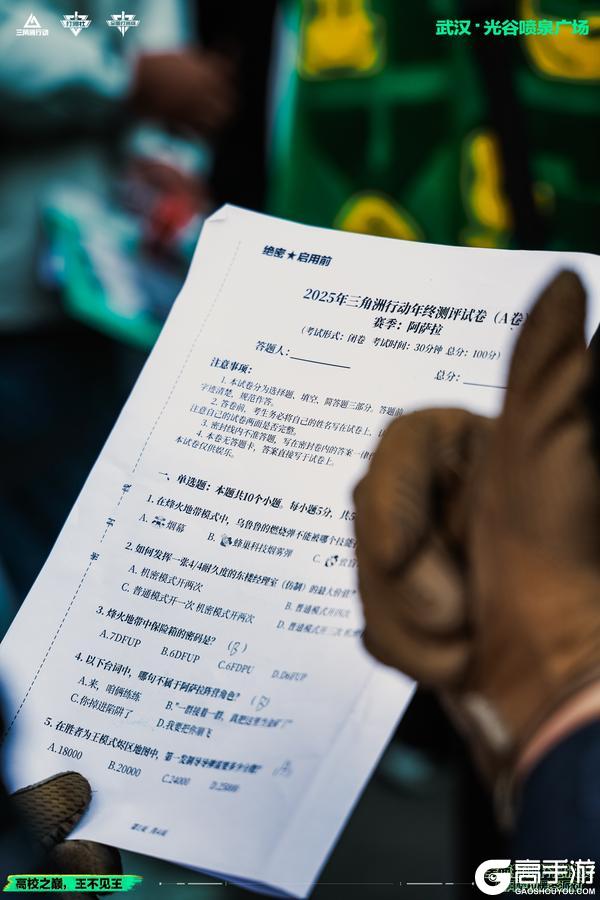 三角洲行动
武汉·光谷喷泉广场
绝密★启用前
2025年三角洲行动年终测评试卷（A卷）
赛季：阿萨拉
（考试形式：闭卷 考试时间：30分钟 总分：100分）
答题人：
总分：
注意事项：
1. 本试卷分为选择题、填空、简答题三部分，答题前
字迹清楚，规范作答。
2. 答卷前，考生务必将自己的姓名写在试卷上，
注意自己的试卷两面是否完整。
3. 密封线内不准答题，写在密封卷内的答案一律
4. 本卷无答题卡，答案直接写于试卷上。
本试卷仅供娱乐。
一、单选题：本题共10个小题。每小题5分，共5
1. 在烽火地带模式中，乌鲁鲁的燃烧弹不能被哪个技能
A. 烟幕 B. 蜂巢科技烟雾弹 C.
2. 如何发挥一张4/4耐久度的东楼经理室（仿制）的最大价值
A. 机密模式开两次 B. 普通模式开四次
C. 普通模式开一次 机密模式开两次 D. 普通模式开三次
3. 烽火地带中保险箱的密码是？（ ）
A.7DFUP B.6DFUP C.6FDPU D.D6FUP
4. 以下台词中，哪句不属于阿萨拉阵营角色？
A.来，咱俩练练 B."一群接着一群，真把这里当金矿了"
C.你掉进陷阱了 D.我要把你崩飞
5. 在胜者为王模式烬区地图中，第一发制导导弹需要多少分数？
A.18000 B.20000 C.24000 D.25000
密
封
线
高校之巅，王不见王
高手游
GAOSHOUYOU.COM